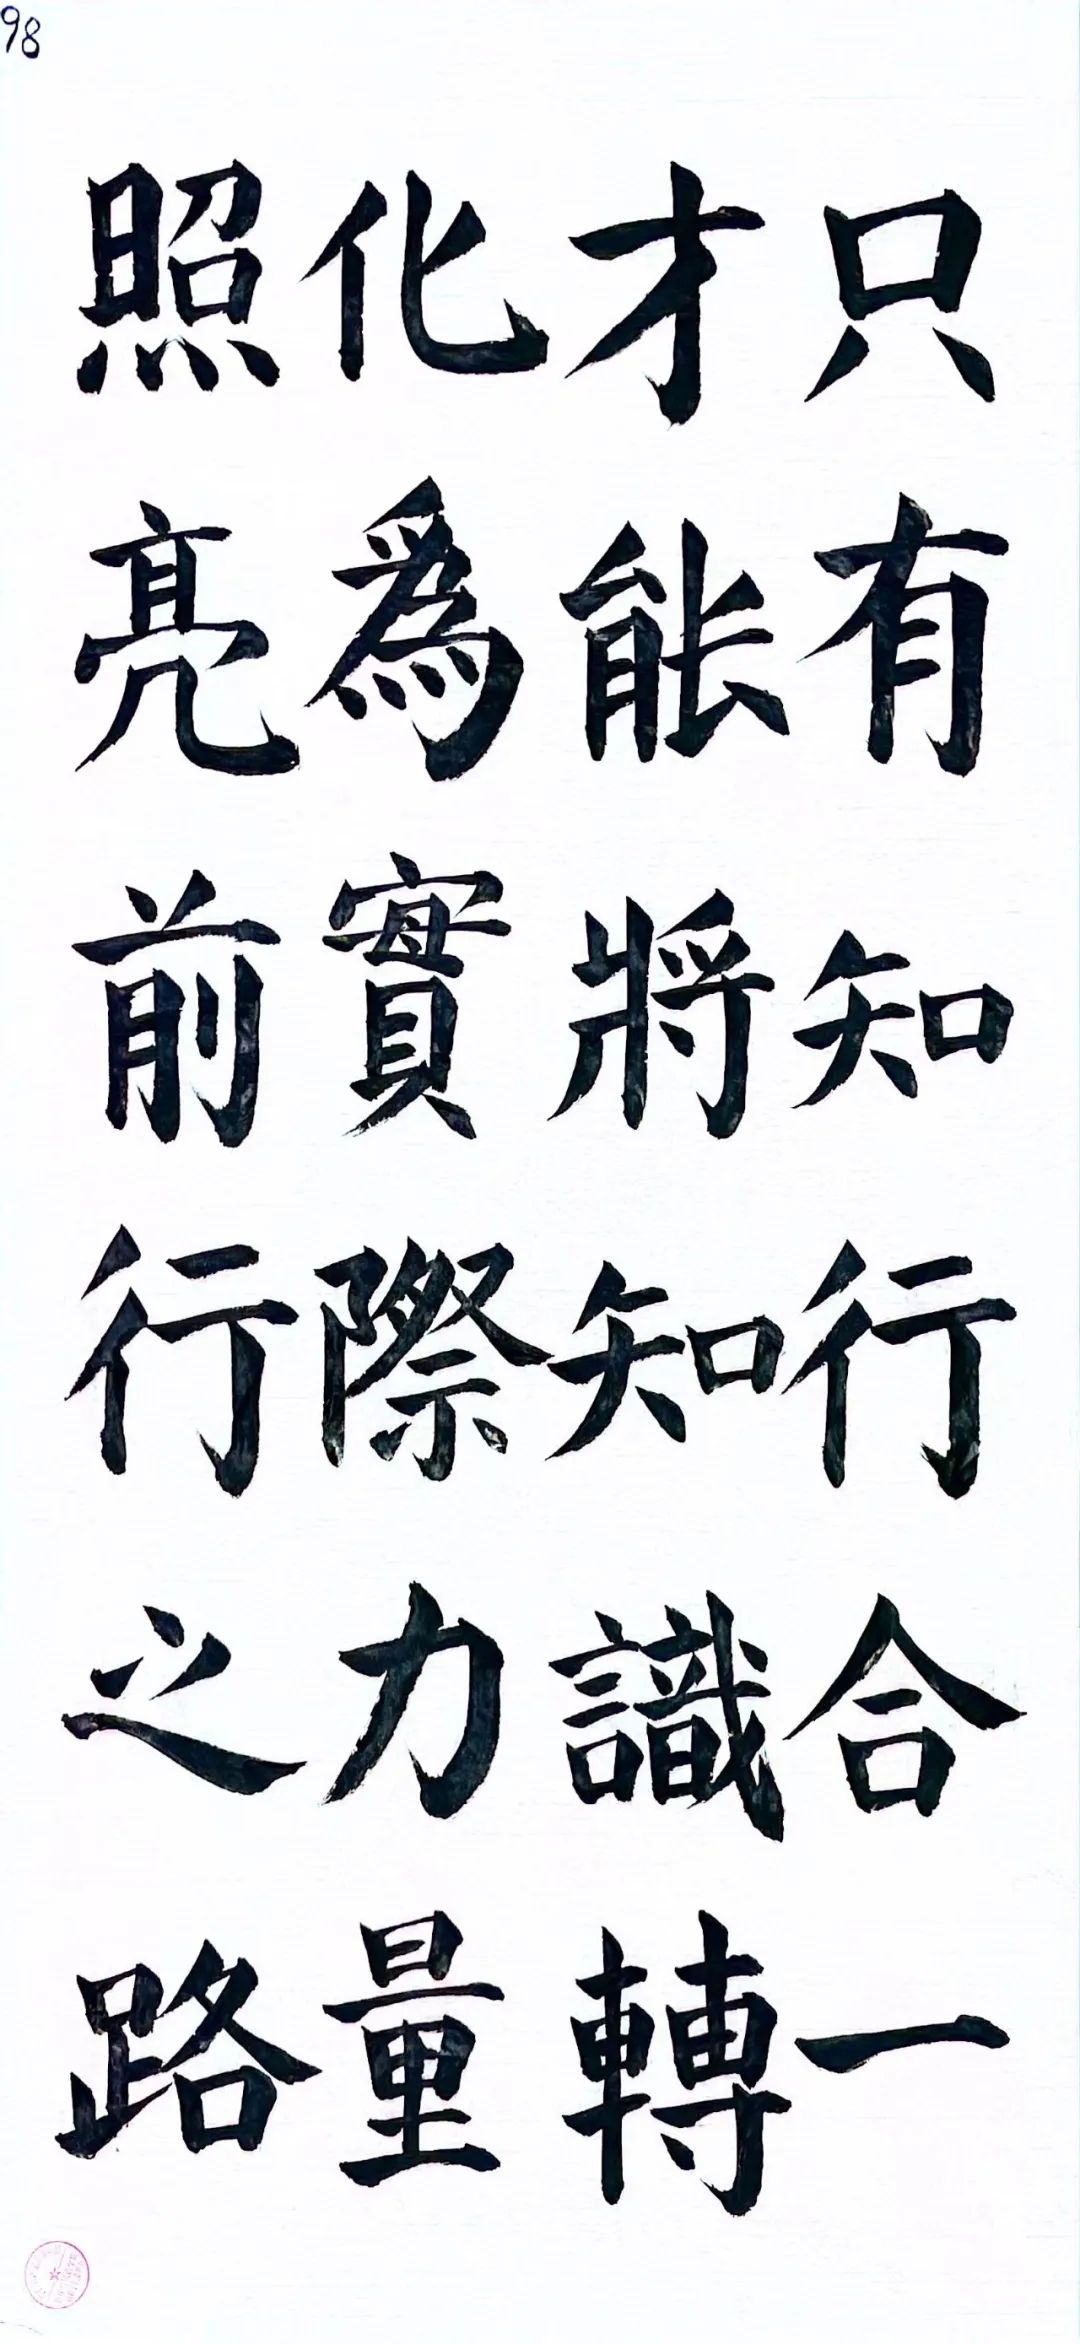 98
只有知行合一
才能將知識轉
化爲實際力量
照亮前行之路